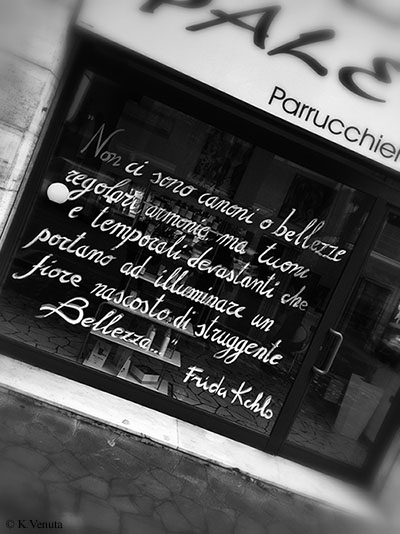 PALE
Parrucchier
Non ci sono canoni o bellezze
regolari armonia, ma tuoni
e temporali devastanti che
portano ad illuminare un
fiore nascosto, di struggente
Bellezza..."
Frida Kchlo
© K. Venuta